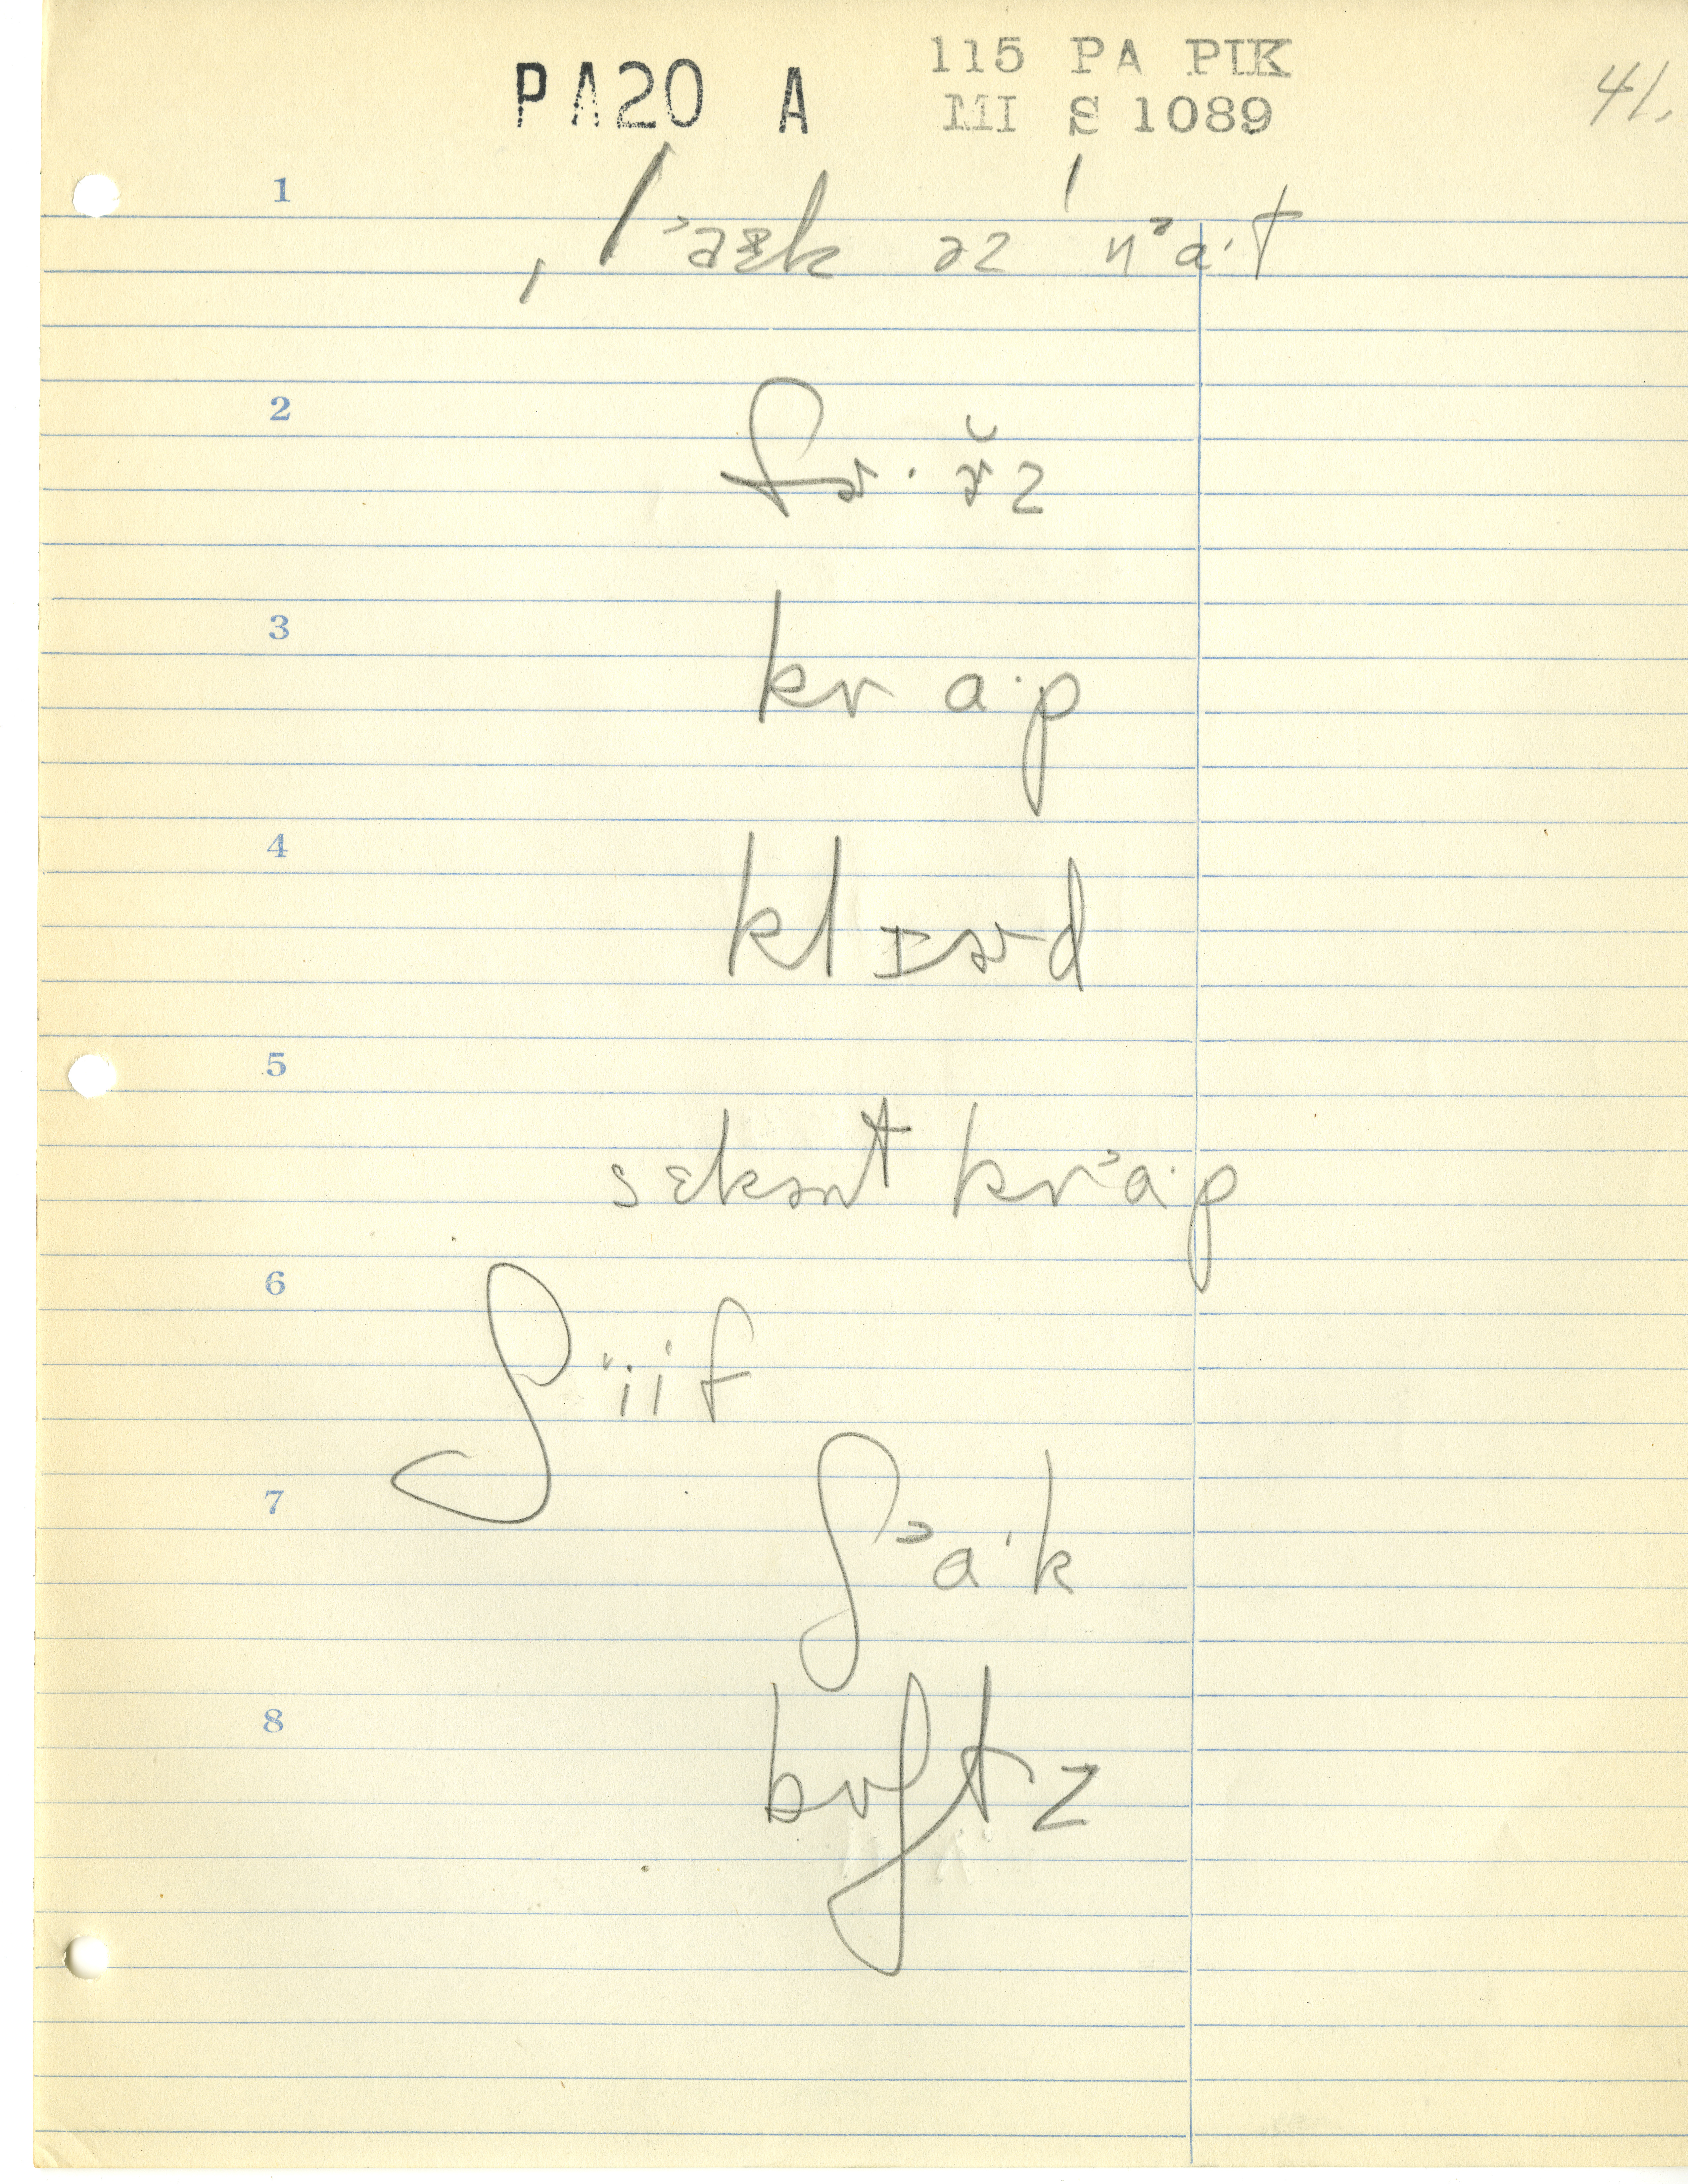 PA20 A
115 PA PIK
MI S 1089
41.
1
ˌlᵊaᵋk əz ˈnᵊaˑt
2
fɚˑɚ̆z
3
kr aˑp
4
klɪɚd
5
sɛkənt krᵊaˑp
6
ʃᶦiˑf
7
ʃᵊaˑk
8
bʌʃtz